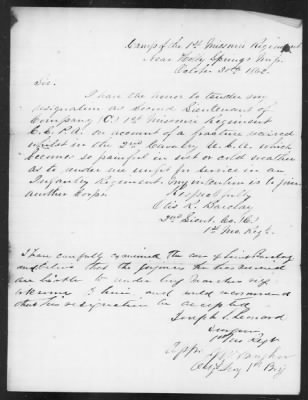 Camp of the 1st Missouri Regiment
Near Holly Springs Miss.
October 30th 1862.
Sir.
I have the honor to tender my
resignation as Second Lieutenant of
Company (C.) 1st Missouri Regiment
on account of a fracture received
whilst in the 2nd Cavalry U.S.A. which
becomes so painful in wet or cold weather
as to render me unfit for service in an
Infantry Regiment. my intention is to join
another Corps.
Respectfully
Otis K. Barclay
2nd Lieut. Co.
1st Mo Regt.
I have carefully examined the case of Lieut Barclay
and believe that the injuries he has received
are liable to render long marches
to him and would recommend
that his resignation be accepted
Joseph Leonard
Surgeon
1st Mo Regt
1st Brig